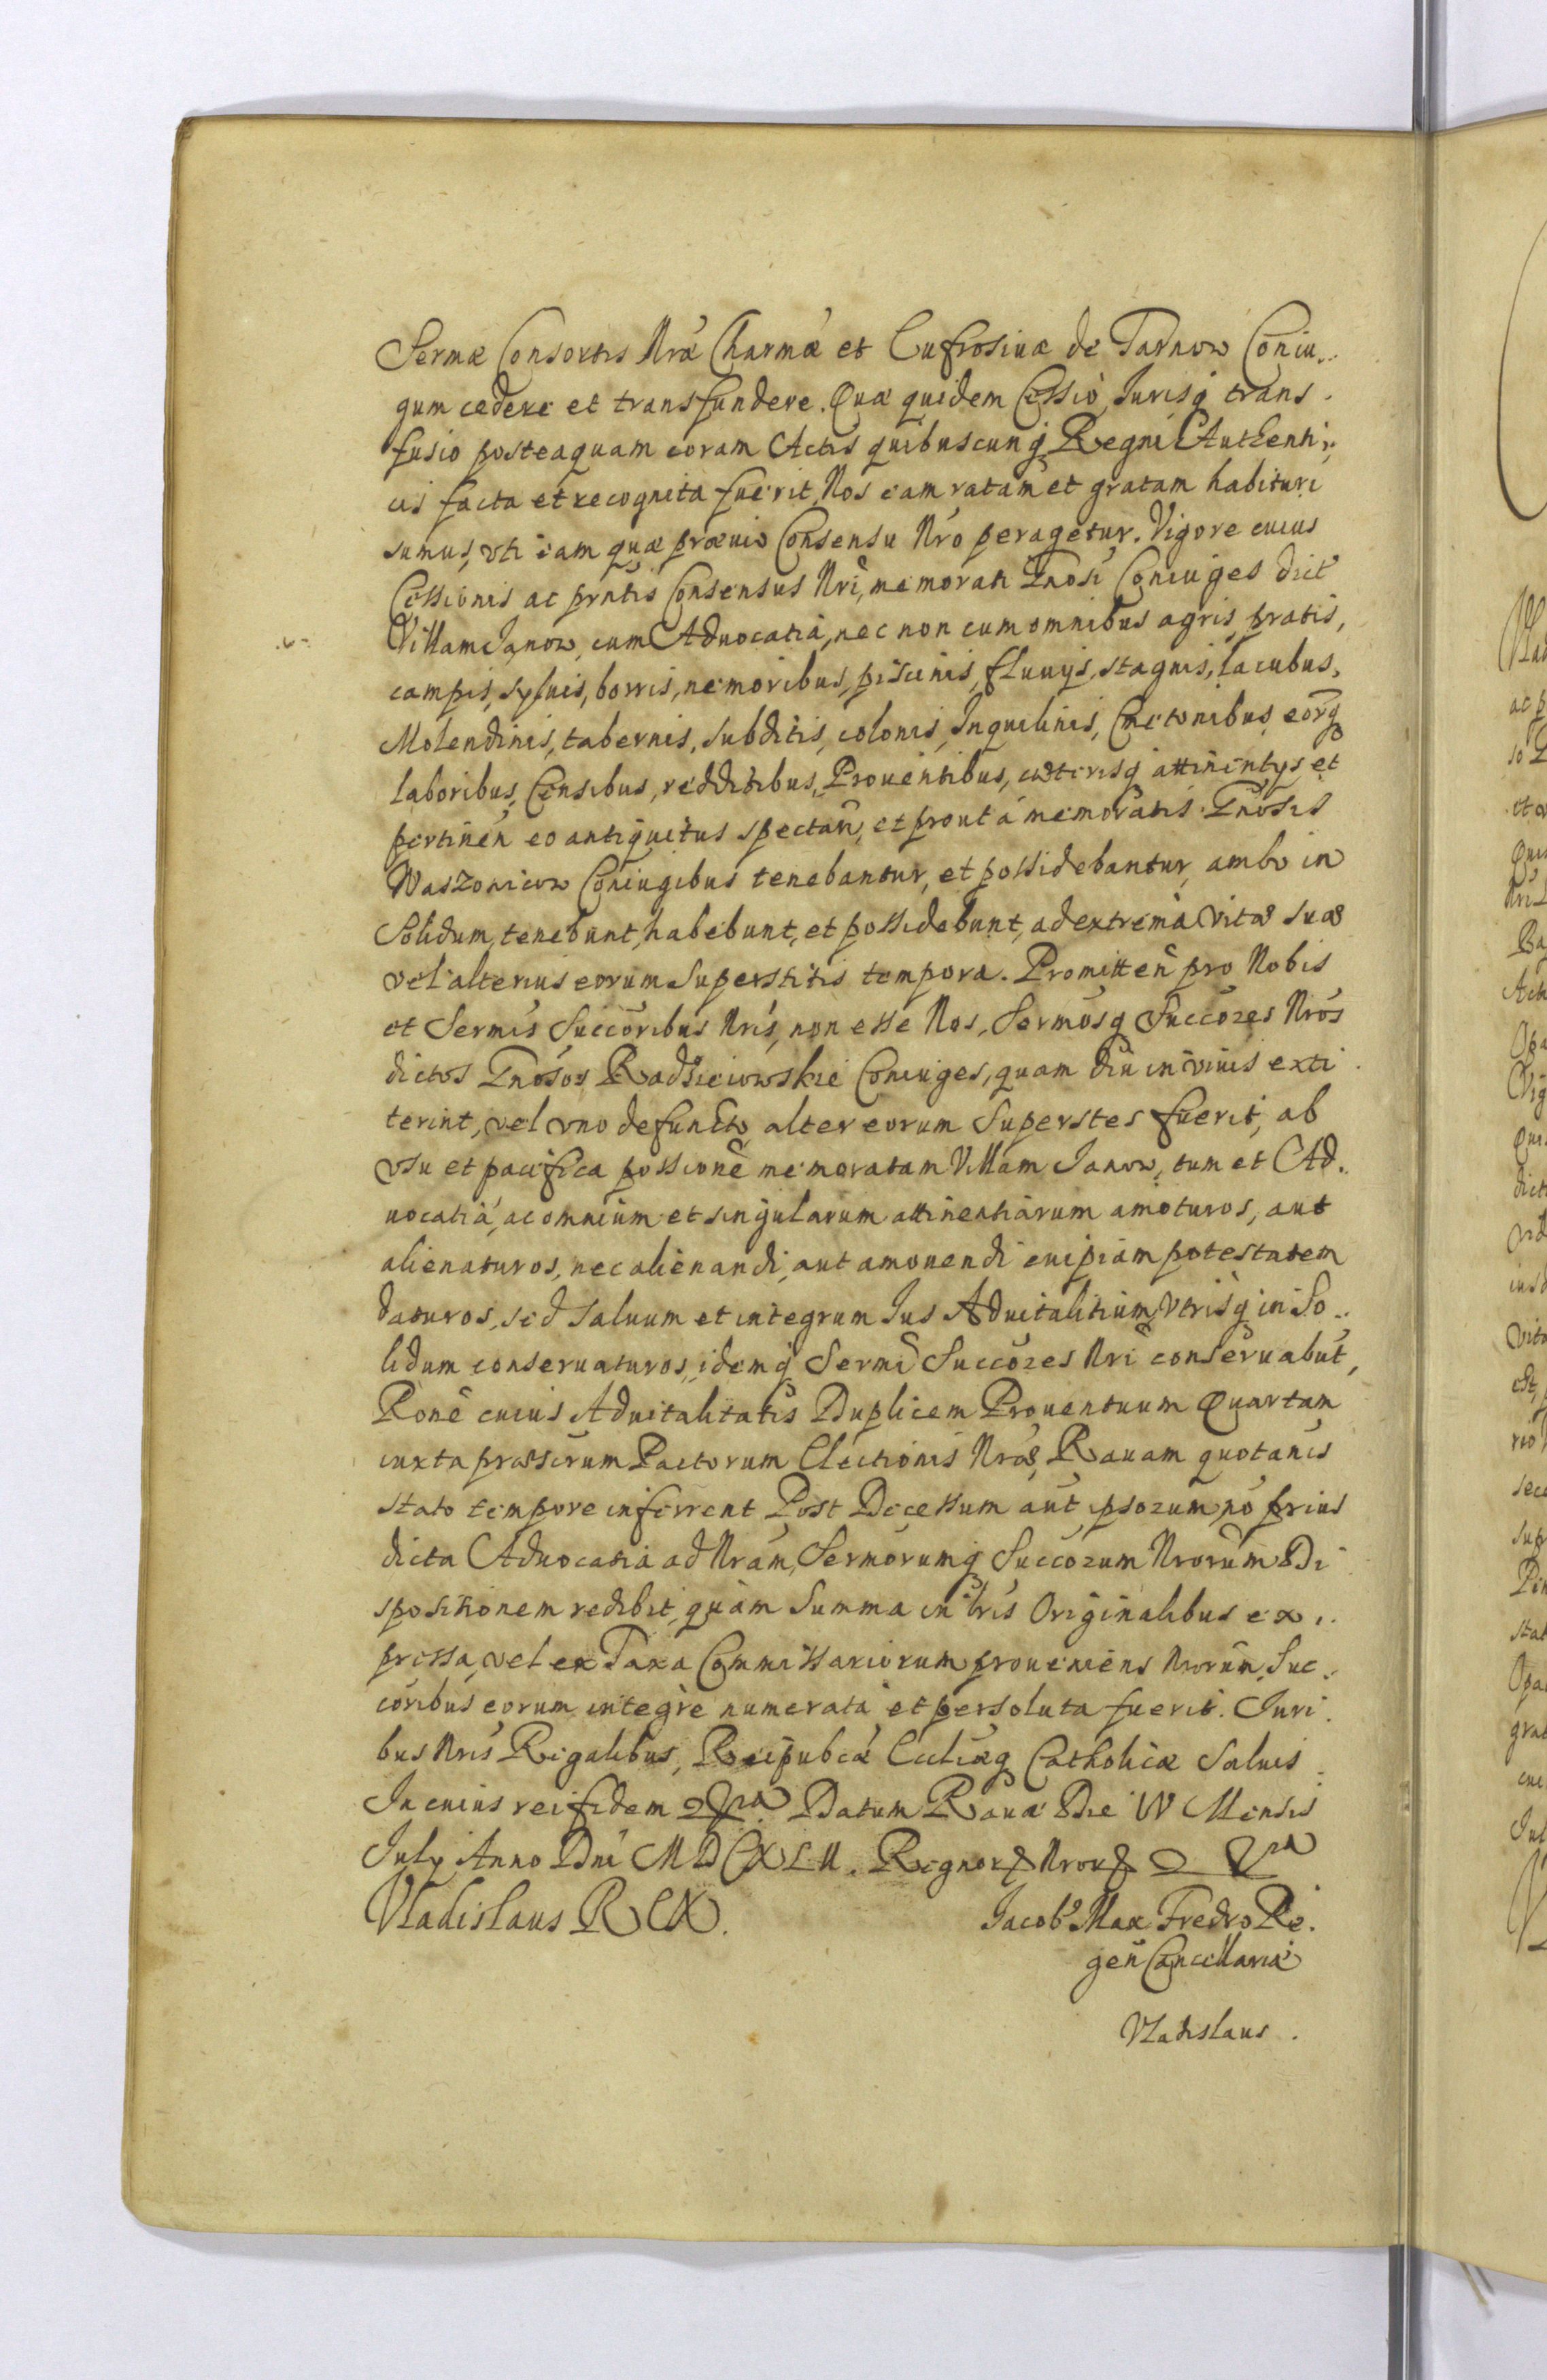 Sermæ Consortis Nræ Charmæ et Eufrosinæ de Tarnow Coniu„
gum cedere et transfundere. Quæ quidem Cessio Jurisq̨ trans„
fusio posteaquam coram Actis quibuscunq̨ Regni Authenti„
cis facta et recognita fuerit, Nos eam ratam et gratam habituri
sumus, vti eam quæ præuio Consensu Nro peragetur. Vigore cuius
Cessionis ac prntis Consensus Nri, memorati Gnosi Coniuges dict
Villam Janow, cum Aduocatia, nec non cum omnibus agris, pratis,
campis, syluis, borris, nemoribus, piscinis, fluuijs, stagnis, lacubus,
Molendinis, tabernis, subditis, colonis, Inquilinis, Cmetonibus, eorq̨
laboribus, Censibus, redditibus, Prouentibus, cæterisq̨ attinentijs, et
pertinen eo antiquitus spectan, et prout á memoratis Gnosis
Waszowicow Coniugibus tenebantur, et possidebantur, ambo in
Solidum, tenebunt, habebunt, et possidebunt, ad extrema vitæ suæ
vel alterius eorum Superstitis tempora. Promitten pro Nobis
et Sermis Succoribus Nris, non esse Nos, Sermosq̨ Succores Nros
dictos Gnosos Radzieiowskie Coniuges, quam diu in viuis exti
terint, vel vno defuncto, alter eorum Superstes fuerit, ab
vsu et pacifica possione memoratam Villam Janow, tum et Ad„
uocatia, ac omnium et singularum attinentiarum amoturos, aut
alienaturos, nec alienandi, aut amouendi cuipiam potestatem
daturos, sed saluum et integrum Jus Aduitalitium, Vtrisq̨ in So„
lidum conseruaturos, idemq̨ Sermi Succores Nri conseruabut,
Rone cuius Aduitalitatis Duplicem Prouentuum Quartam
iuxta præscrum Pactorum Electionis Nræ, Rauam quotanis
stato tempore inferrent. Post Decessum aut ipsorum, no prius
dicta Aduocatia ad Nram, Sermorumq̨ Succorum Nrorum Di
spositionem redibit, quàm Summa in lris Originalibus ex„
pressa, vel ex Taxa Commissariorum proueniens Nrorum Suc„
coribus eorum integre numerata et persoluta fuerit. Juri„
bus Nris Regalibus, Reipubcæ Ecclæq̨ Catholicæ Saluis
In cuius rei fidem Datum Rauæ Die IV Mensis
July Anno Dni MDCXLII. Regnor Nror
Vladislaus REX. Jacob Max Fredro Re„
gen Cancellariæ
Vladislaus.